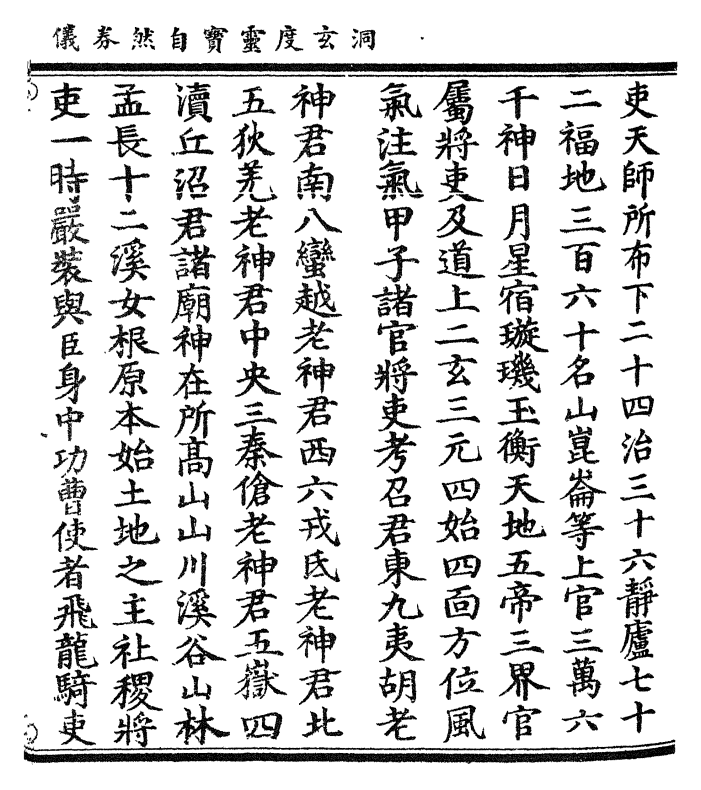 洞玄度靈寶自然券儀
吏天師所布下二十四治三十六靜廬七十
二福地三百六十名山崑崙等上官三萬六
千神日月星宿璇璣玉衡天地五帝三界官
屬將吏及道上二玄三元四始四面方位風
氣注氣甲子諸官將吏考召君東九夷胡老
神君南八蠻越老神君西六戎氐老神君北
五狄羌老神君中央三秦傖老神君五嶽四
瀆丘沼君諸廟神在所高山山川溪谷山林
孟長十二溪女根原本始土地之主社稷將
吏一時嚴裝與臣身中功曹使者飛龍騎吏